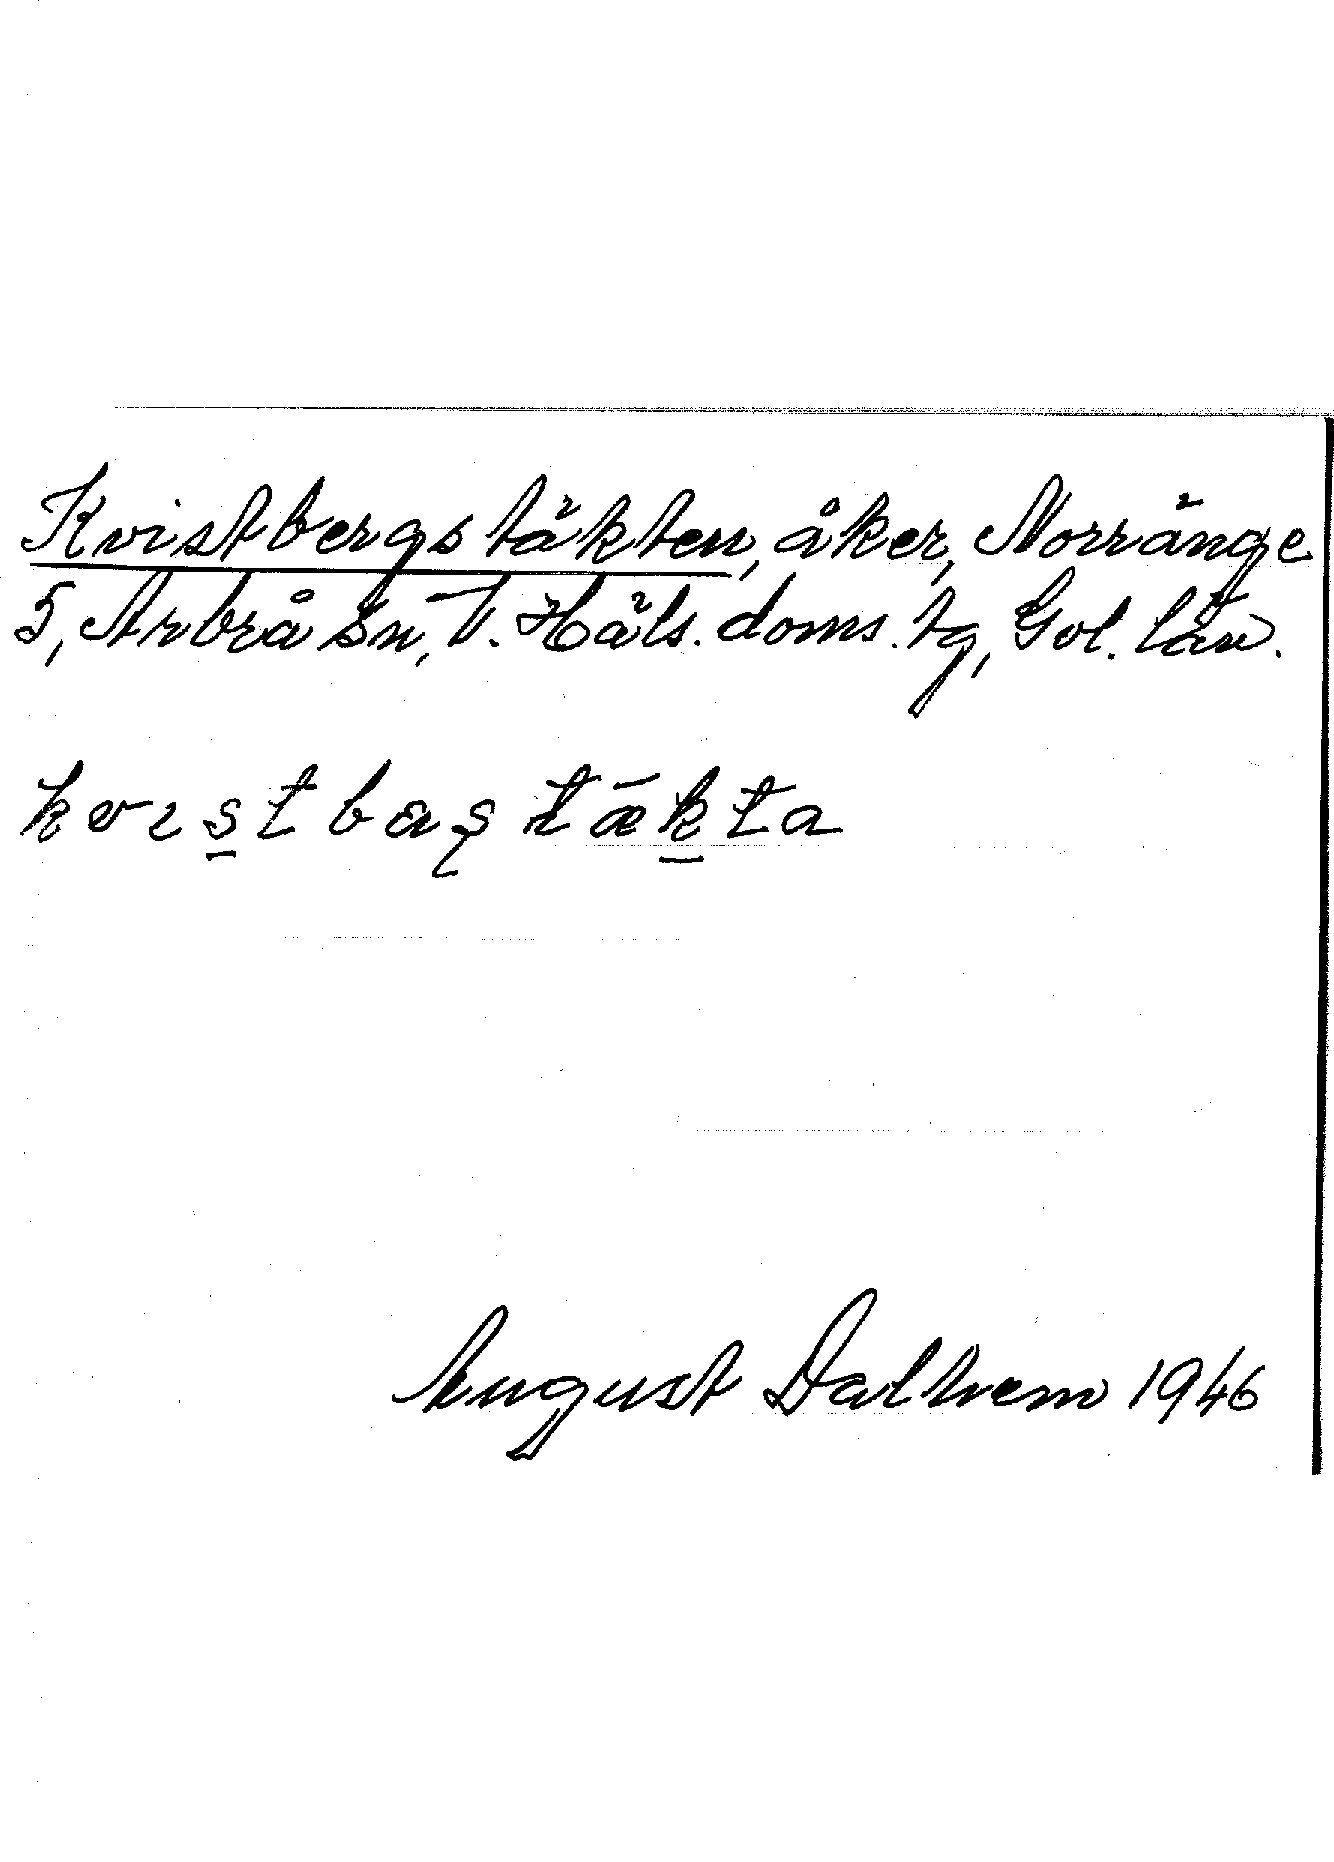 Kvistbergstäkten, åker, Norränge
5, Arbrå sn, V. Häls. doms. tg, Gvl. län.
kvistbæʂtækta
August Dalhem 1946